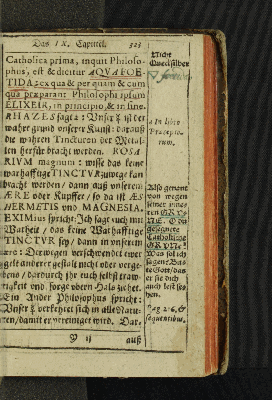 Das IX. Capittel. 323
Catholica prima, inquit Philoso-
phus, est & dicitur AQVA FOE-
TIDA: ex qua & per quam & cum
qua præparant Philosophi ipsum
ELIXEIR, in principio, & in fine.
RHAZES sagt a: Unser ☿ ist der
wahre grund unserer Kunst: darauß
die wahren Tincturen der Metal-
len herfür bracht werden. ROSA
RIUM magnum: wisse das keine
warhafftige TINCTUR zuwege kan
bracht werden / dann auß unserem
ÆRE oder Kupffer / so da ist ÆS
HERMETIS und MAGNESIA.
EXIMius spricht: Ich sagt euch mit
Warheit / das keine Warhafftige
TINCTVR sey / dann in unserem
ære: Derwegen verschwendet ewer
gelt anderer gestalt nicht oder verge-
bens / dardurch ihr euch selbst traw-
rigkeit und sorge übern Hals ziehet.
Ein Ander Philosophus spricht:
Unser ☿ verkehret sich in alle Natu-
ren / damit er vereiniget wird. Dar-
ij auß
Nicht
Quecksilber
a In libro
Præcepto-
rum.
Also genant
von wegen
seiner
Catholischen
Was sol ich
sagen? Bas
te Gott / das
er sie dich
auch
sequentibus.